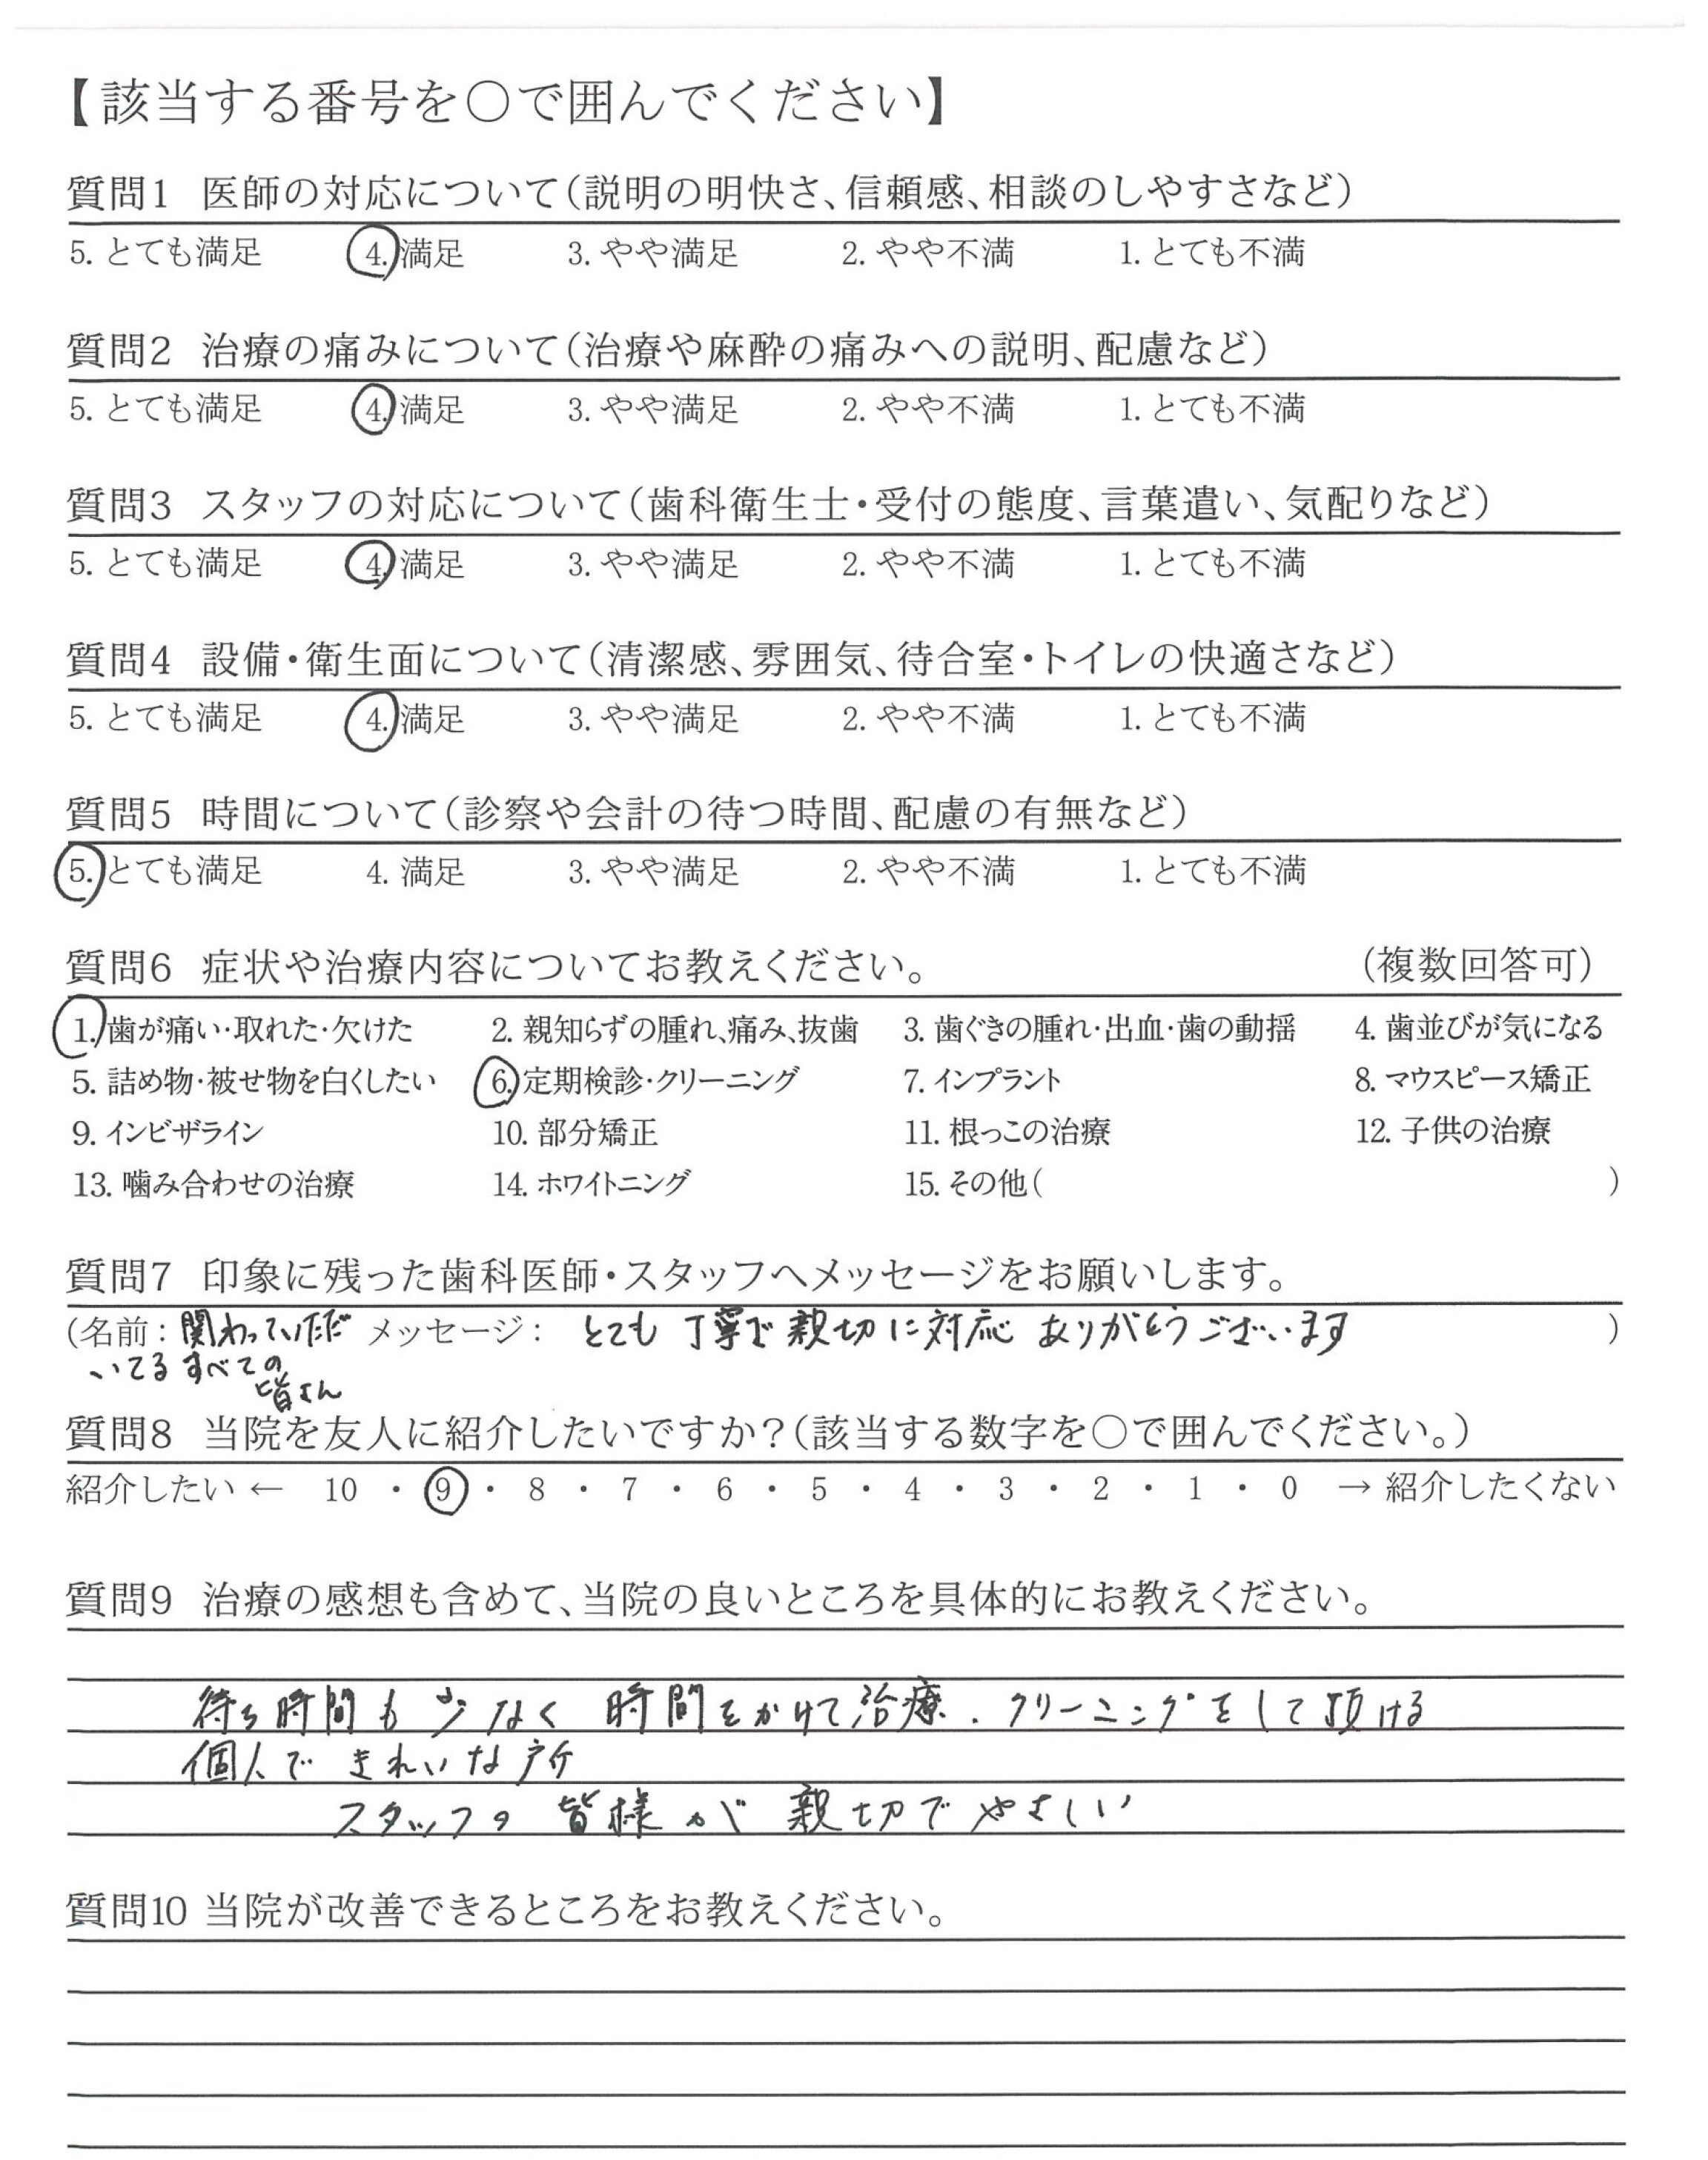 【該当する番号を〇で囲んでください】
質問1 医師の対応について（説明の明快さ、信頼感、相談のしやすさなど）
5. とても満足 4. 満足 3. やや満足 2. やや不満 1. とても不満
質問2 治療の痛みについて（治療や麻酔の痛みへの説明、配慮など）
5. とても満足 4. 満足 3. やや満足 2. やや不満 1. とても不満
質問3 スタッフの対応について（歯科衛生士・受付の態度、言葉遣い、気配りなど）
5. とても満足 4. 満足 3. やや満足 2. やや不満 1. とても不満
質問4 設備・衛生面について（清潔感、雰囲気、待合室・トイレの快適さなど）
5. とても満足 4. 満足 3. やや満足 2. やや不満 1. とても不満
質問5 時間について（診察や会計の待つ時間、配慮の有無など）
5. とても満足 4. 満足 3. やや満足 2. やや不満 1. とても不満
質問6 症状や治療内容についてお教えください。 （複数回答可）
1. 歯が痛い・取れた・欠けた 2. 親知らずの腫れ、痛み、抜歯 3. 歯ぐきの腫れ・出血・歯の動揺 4. 歯並びが気になる
5. 詰め物・被せ物を白くしたい 6. 定期検診・クリーニング 7. インプラント 8. マウスピース矯正
9. インビザライン 10. 部分矯正 11. 根っこの治療 12. 子供の治療
13. 噛み合わせの治療 14. ホワイトニング 15. その他（ ）
質問7 印象に残った歯科医師・スタッフへメッセージをお願いします。
（名前：関わっていただ メッセージ： とても 丁寧で 親切に対応 ありがとうございます ）
いてる すべての
皆さん
質問8 当院を友人に紹介したいですか？（該当する数字を〇で囲んでください。）
紹介したい ← 10 ・ 9 ・ 8 ・ 7 ・ 6 ・ 5 ・ 4 ・ 3 ・ 2 ・ 1 ・ 0 → 紹介したくない
質問9 治療の感想も含めて、当院の良いところを具体的にお教えください。
待ち時間も 少なく 時間をかけて治療．クリーニングをして頂ける
個人で きれいな所
スタッフの 皆様が 親切で やさしい
質問10 当院が改善できるところをお教えください。